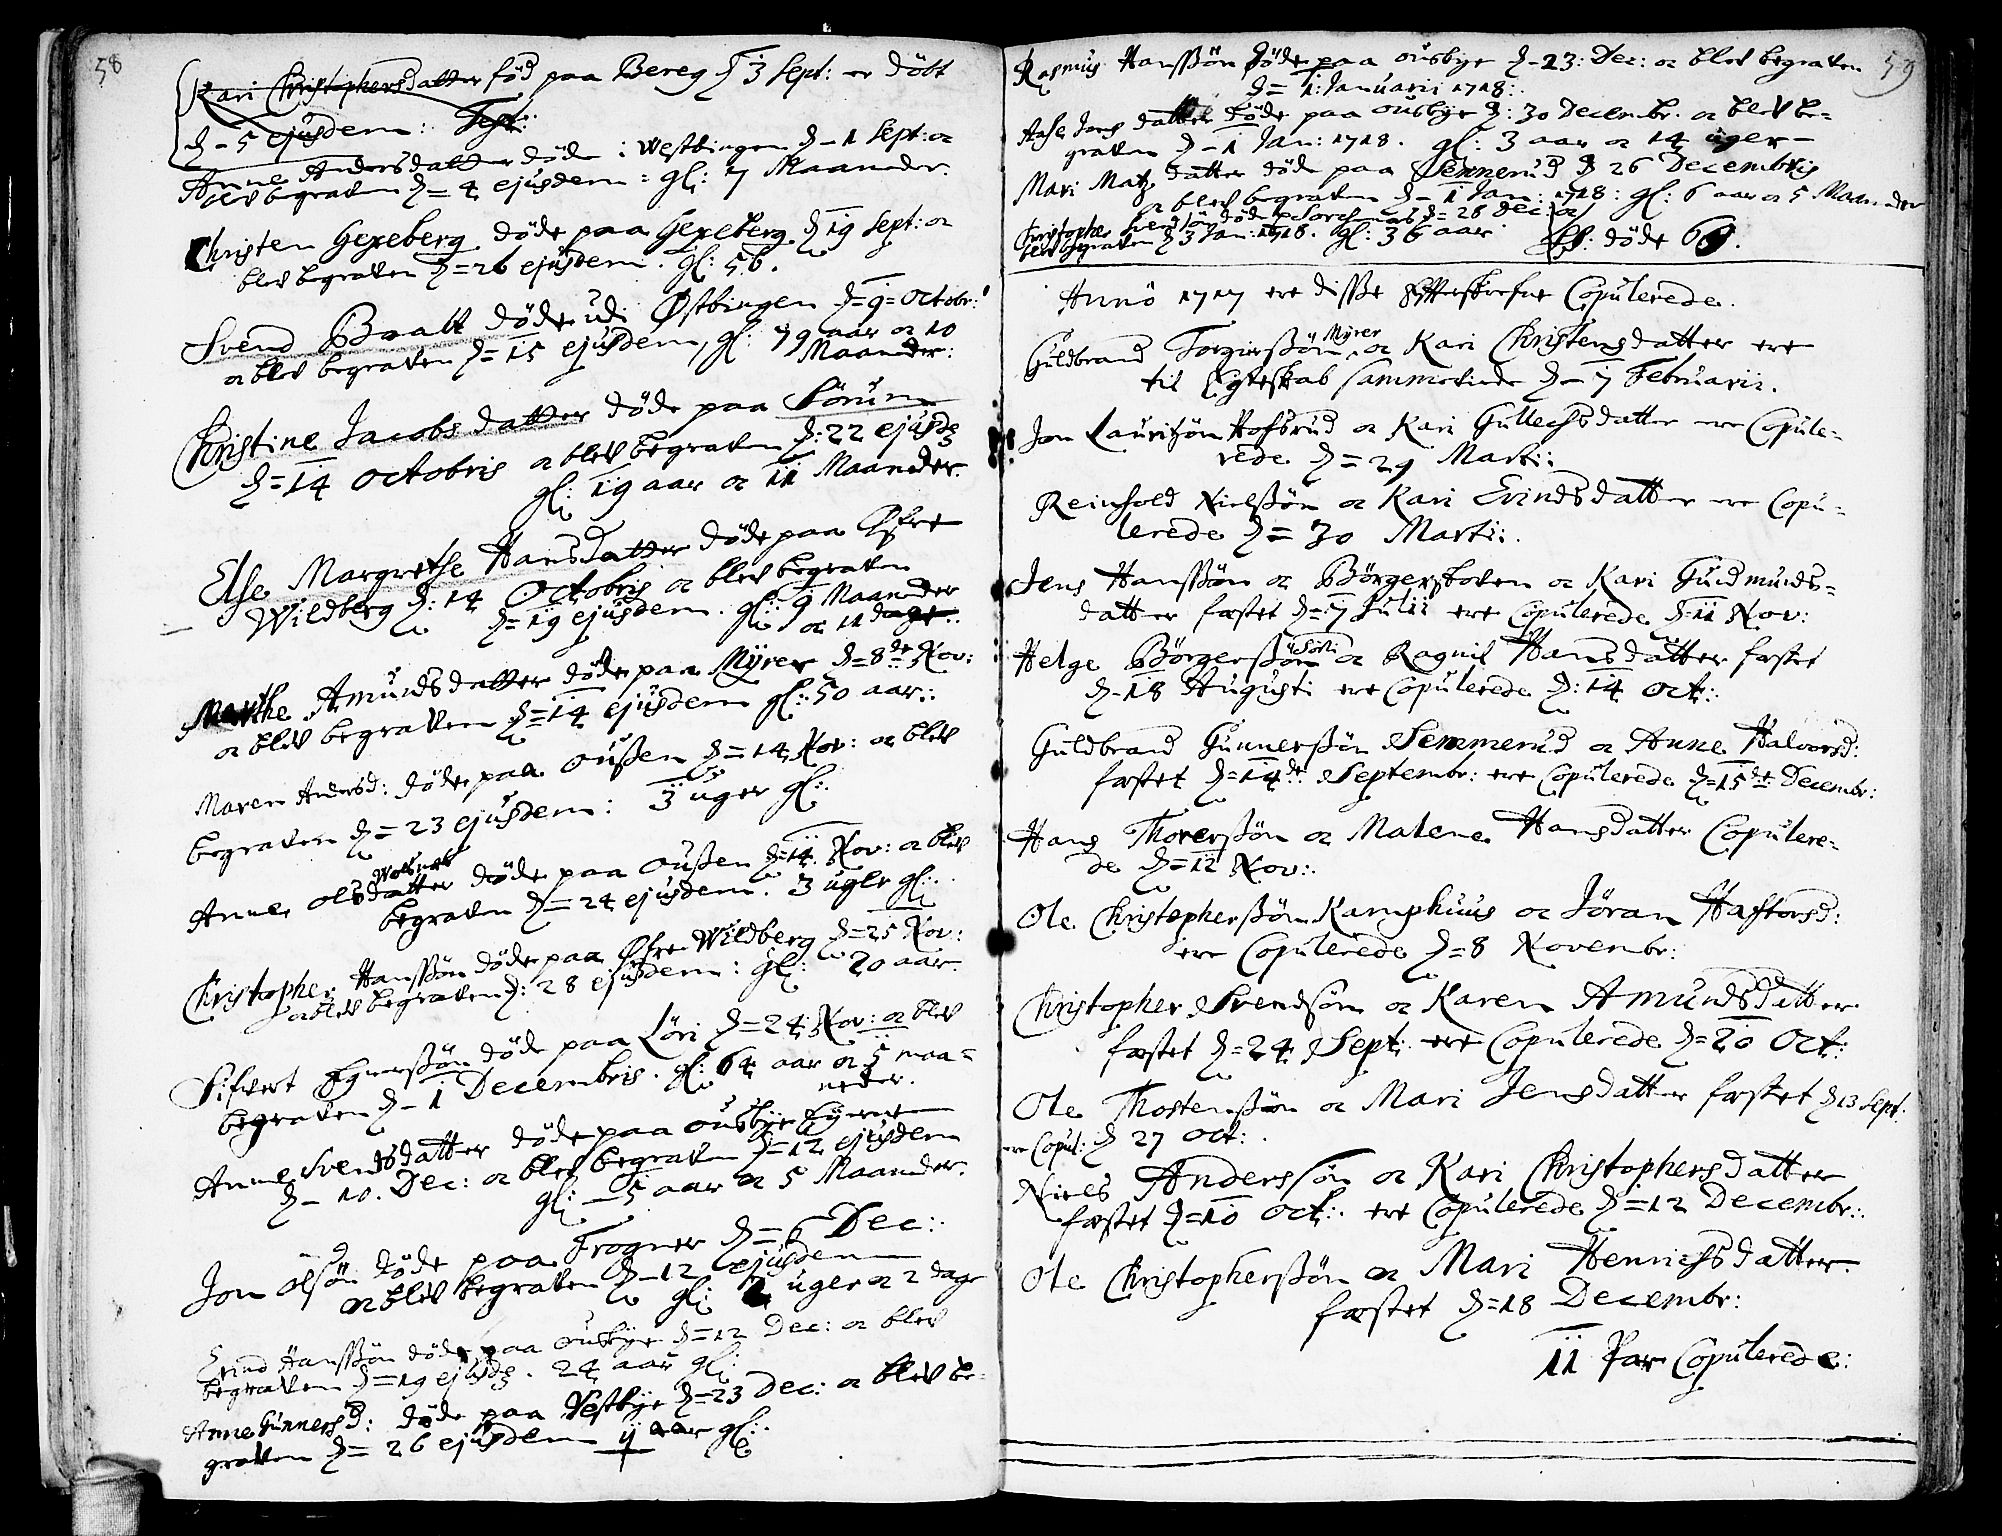 58
Kari Christophersdatter fød paa Bereg d 3 Sept: er döbt
d - 5 ejusdem: Test:
Anne Andersdatter döde i Westbingen d - 1 Sept: oc
blev begraven d = 4 ejusdem: gl: 7 Maaneder.
Christen Gexeberg döde paa Gexeberg d 19 Sept: oc
blev begraven d = 26 ejusdem. gl: 56.
Svend Braatt döde udi Østbingen d = 9 = Octobr:
oc blev begraven d = 15 ejusdem, gl: 79 aar oc 10
Maaneder:
Christine Jacobsdatter döde paa Sörum
d = 14 Octobris oc blev begraven d: 22 ejusd
gl: 19 aar oc 11 Maaneder.
Else Margrethe Hansdatter döde paa Øfre
Wildberg d: 14 Octobris oc blev begraven
d = 19 ejusdem. gl: 9 Maaneder
oc 11 dage.
Marthe Amundsdatter döde paa Myrer d = 8de Nov:
oc blev begraven d = 14 ejusdem gl: 50 aar:
Maren Andersd: döde paa Oussen d = 14 Nov: oc blev
begraven d = 23 ejusdem: 3 uger gl:
Anne Olsdatter döde paa Oussen d = 14 Nov: oc blev
begraven d = 24 ejusdem. 3 uger gl:
Christopher Hanssön döde paa Øfre Wildberg d = 25 Nov:
oc blev begraven d: 28 ejusdem: gl: 20 aar.
Sifvert döde paa Löri d = 24 Nov: oc blev
begraven d - 1 Decembris. gl: 64 aar oc 5 maa=
neder.
Anne Svendsdatter döde paa Ousbye
d - 10. Dec: oc blev begraven d = 12 ejusdem
gl: 5 aar oc 5 Maaneder.
Jon Olsön döde paa Frogner d = 6 Dec:
oc blev begraven d - 12 ejusdem
gl: uger oc 2 dage
Evind Hanssön döde paa Ousbye d = 12 Dec: oc blev
begraven d = 19 ejusd. 24 aar gl:
Anne Gunnersd: döde paa Vestbye d = 23 Dec: oc blev be=
graven d = 26 ejusdem 4 aar gl:
59
Rasmus Hanssön döde paa Ousbye d - 23: Dec: oc blev begraven
d = 1: Januarii 1718:
Aase Jens datter döde paa Ousbye d: 30 Decembr. oc blev be=
graven d - 1 Jan: 1718. gl: 3 aar oc 14 uger -
Mari Matz datter döde paa Semmerud d 26 Decembris
oc blev begraven d - 1 Jan: 1718: gl: 6 aar oc 5 Maaneder
Christopher Svendsön döde p d = 28 Dec: oc
blev begraven d 3 Jan: 1718. gl: 36 aar. döde 60.
Anno 1717 ere disse Efterskrefne Copulerede.
Myrer
Guldbrand Torgierssön oc Kari Christensdatter ere
til Egteskab sammeviede d - 7 Februarii.
Jon Lauritzön Hofsrud oc Kari Gullechsdatter ere Copule=
rede d = 29 Martii
Reinhold Nielssön oc Kari Evindsdatter ere Copu=
lerede d = 30 Martii.
Jens Hanssön oc Börgerstoven oc Kari Gudmunds=
datter festet d = 7 Julii ere Copulerede d - 11 Nov:
Helge Börgerssön oc Ragnil Hansdatter festet
d - 18 Augusti ere Copulerede d: 14 Oct:
Guldbrand Gunnerssön Semmerud oc Anne Halvorsd:
festet d = 14de Septembr: ere Copulerede d = 15de Decembr:
Hans Thorerssön oc Malene Hansdatter Copulere=
de d = 12 Nov:
Ole Christopherssön Kamphuus oc Jöran Haftorsd:
ere Copulerede d = 8 Novembr:
Christopher Svendsön oc Karen Amundsdatter
festet d = 24 Sept: ere Copulerede d = 20 Oct:
Ole Thostenssön oc Mari Jensdatter festet d 13 Sept:
ere Copul: d 27 Oct:
Niels Anderssön oc Kari Christophersdatter
festet d = 10 Oct: ere Copulerede d = 12 Decembr:
Ole Christopherssön oc Mari Henrichsdatter
festet d = 18 Decembr:
11 Par Copulerede: